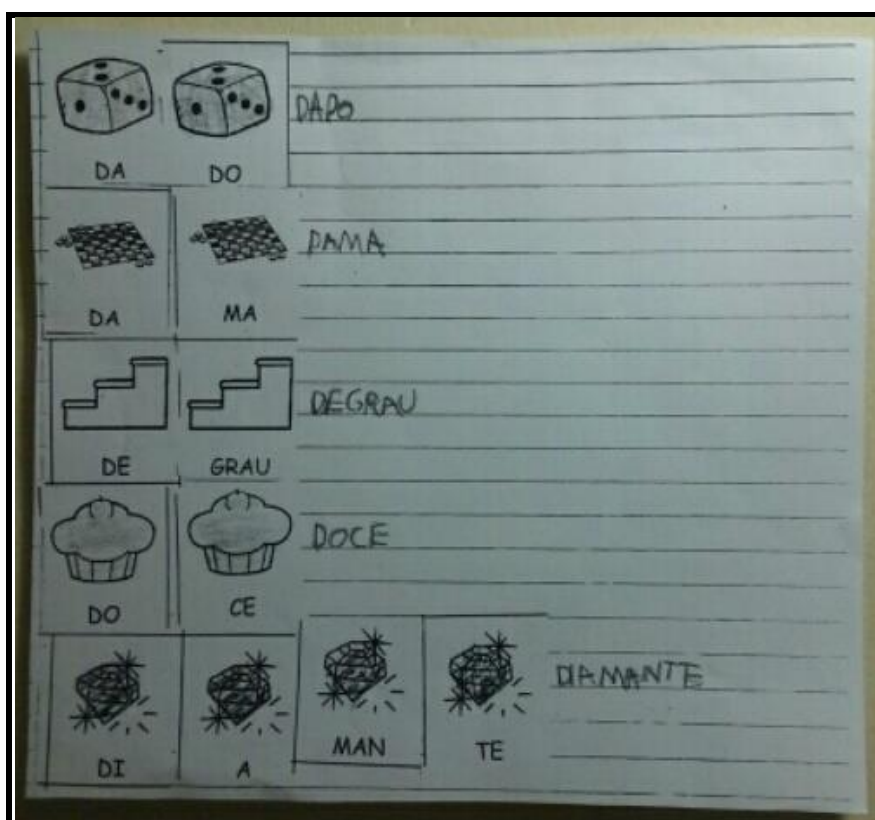 DA DO DADO
DA MA DAMA
DE GRAU DEGRAU
DO CE DOCE
DI A MAN TE DIAMANTE